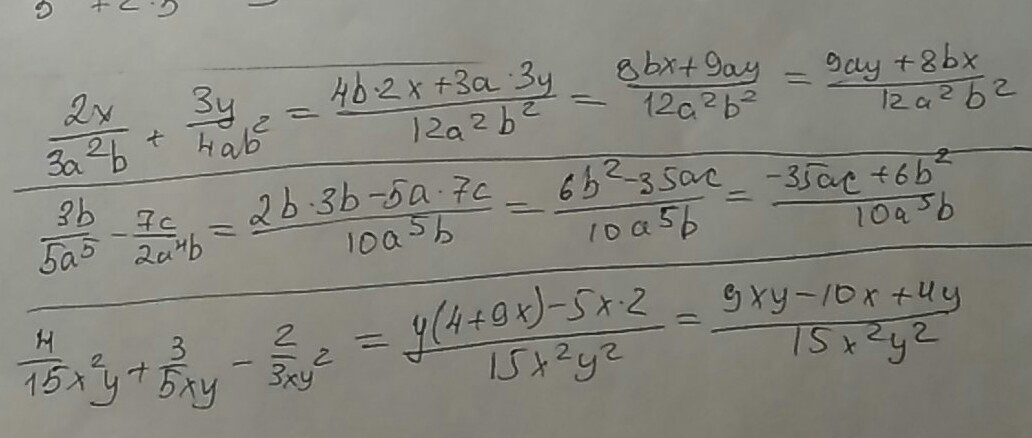 \frac{2x}{3a^2b} + \frac{3y}{4ab^2} = \frac{4b·2x+3a·3y}{12a^2b^2} = \frac{8bx+9ay}{12a^2b^2} = \frac{9ay+8bx}{12a^2b^2}
\frac{3b}{5a^5} - \frac{7c}{2a^4b} = \frac{2b·3b-5a·7c}{10a^5b} = \frac{6b^2-35ac}{10a^5b} = \frac{-35ac+6b^2}{10a^5b}
\frac{4}{15}x^2y + \frac{3}{5xy} - \frac{2}{3xy^2} = \frac{y(4+9x)-5x·2}{15x^2y^2} = \frac{9xy-10x+4y}{15x^2y^2}